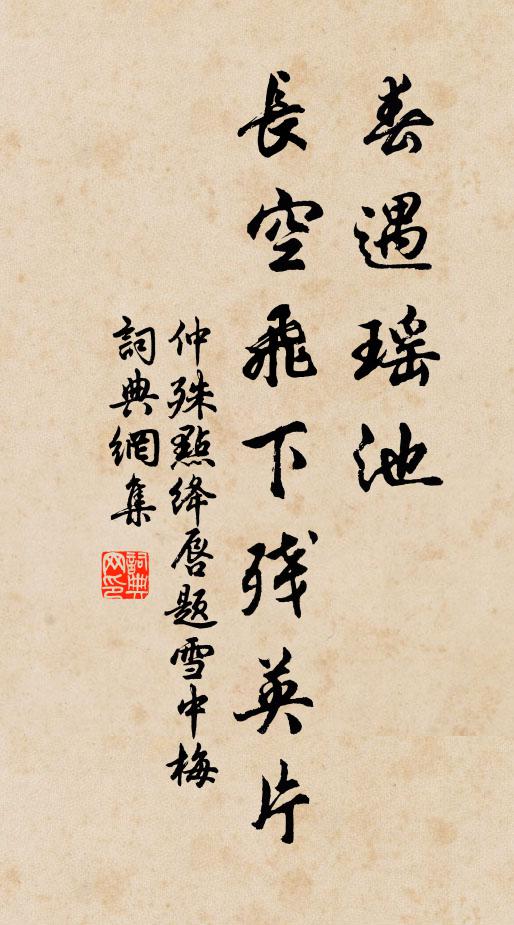 春遇瑶池
長空飛下残英片
仲殊點絳唇题雪中梅
詞典網集
詞典网印